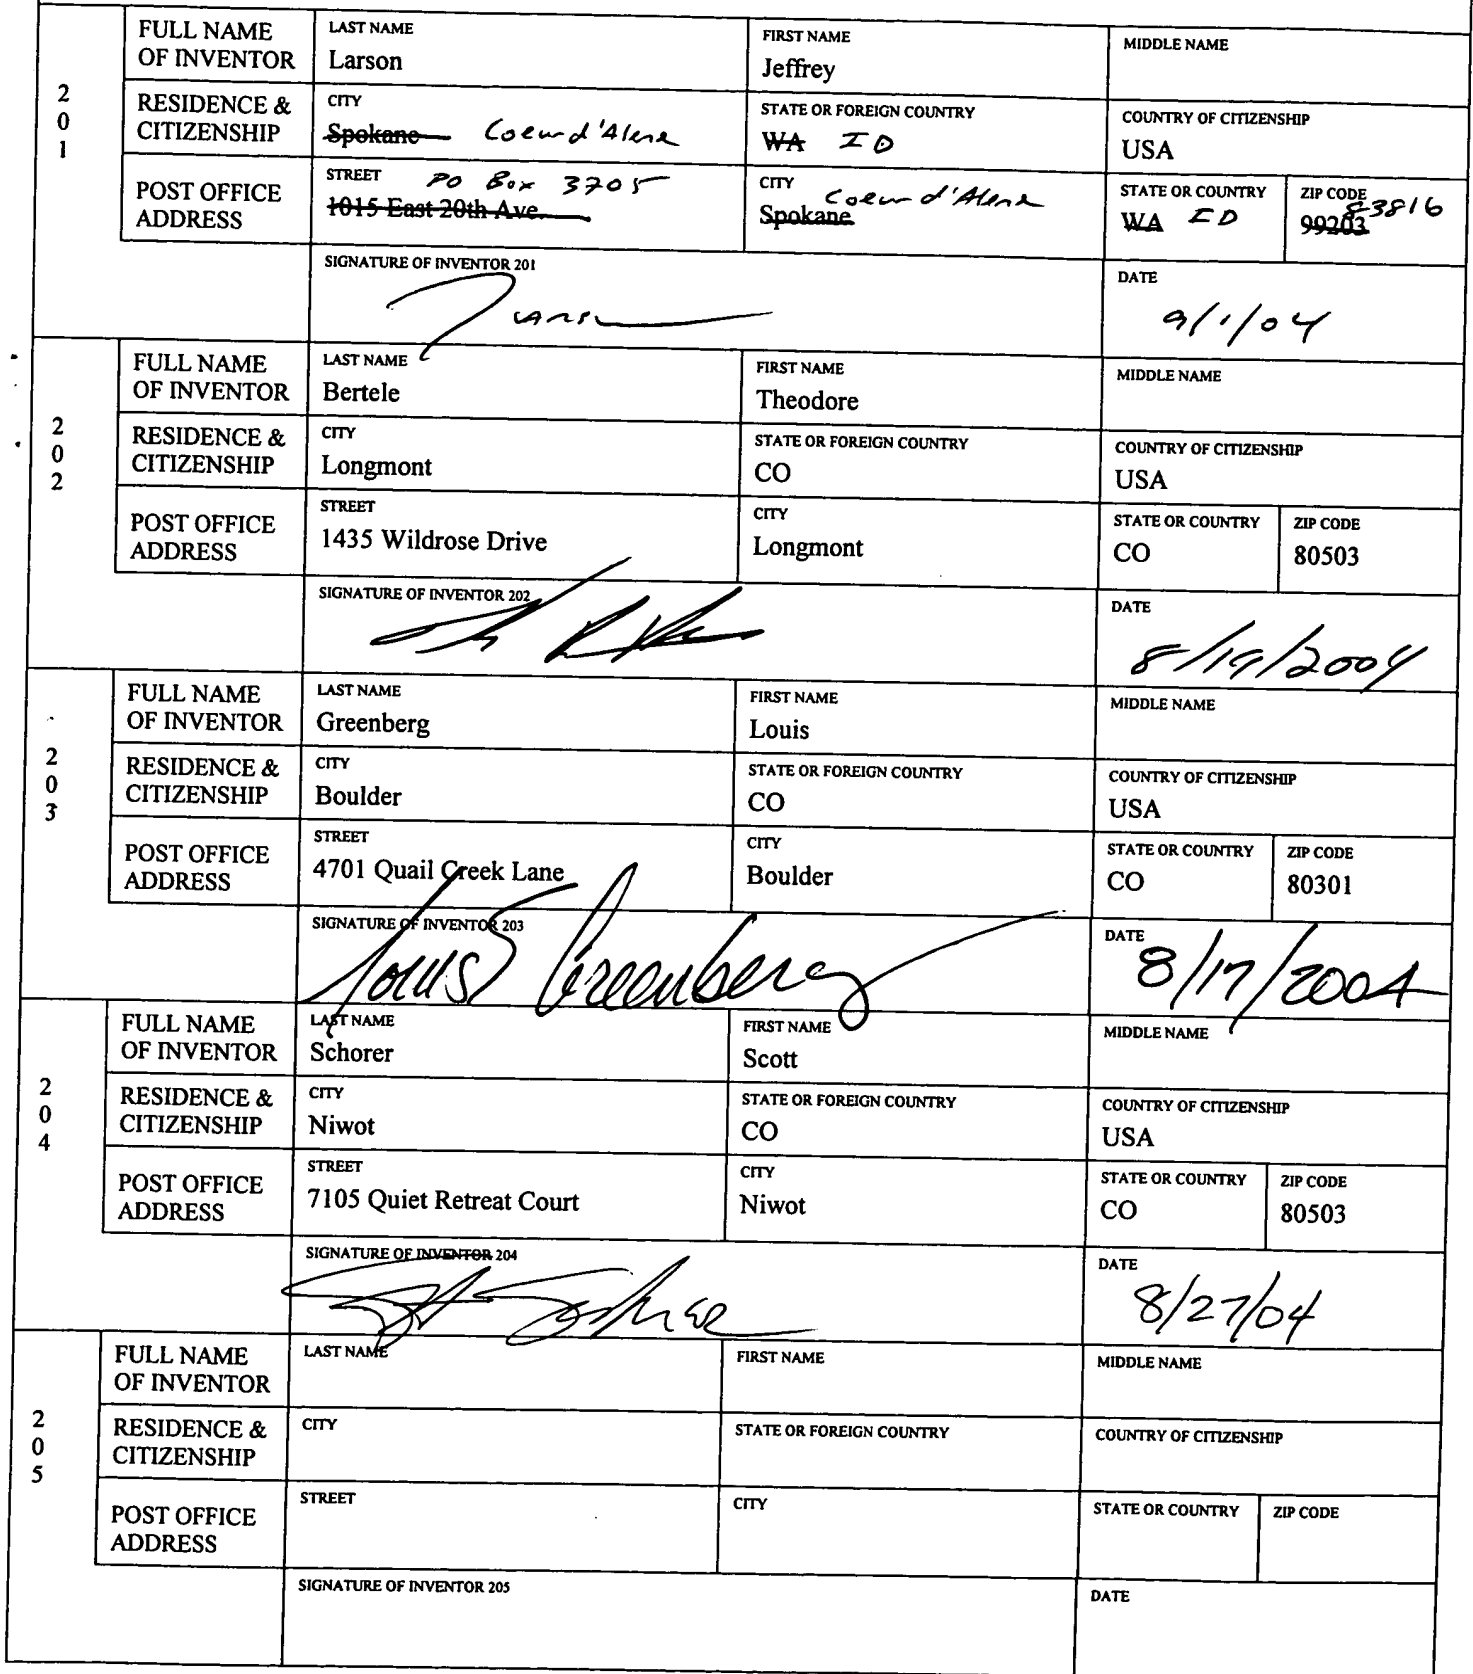 FULL NAME OF INVENTOR
LAST NAME
Larson
FIRST NAME
Jeffrey
MIDDLE NAME
201
RESIDENCE & CITIZENSHIP
CITY
Spokane Coeur d'Alene
STATE OR FOREIGN COUNTRY
WA ID
COUNTRY OF CITIZENSHIP
USA
POST OFFICE ADDRESS
STREET PO Box 3705
1015 East 20th Ave.
CITY Coeur d'Alene
Spokane
STATE OR COUNTRY
WA ID
ZIP CODE
99203 83816
SIGNATURE OF INVENTOR 201
Larson
DATE
9/1/04
FULL NAME OF INVENTOR
LAST NAME
Bertele
FIRST NAME
Theodore
MIDDLE NAME
202
RESIDENCE & CITIZENSHIP
CITY
Longmont
STATE OR FOREIGN COUNTRY
CO
COUNTRY OF CITIZENSHIP
USA
POST OFFICE ADDRESS
STREET
1435 Wildrose Drive
CITY
Longmont
STATE OR COUNTRY
CO
ZIP CODE
80503
SIGNATURE OF INVENTOR 202
DATE
8/19/2004
FULL NAME OF INVENTOR
LAST NAME
Greenberg
FIRST NAME
Louis
MIDDLE NAME
203
RESIDENCE & CITIZENSHIP
CITY
Boulder
STATE OR FOREIGN COUNTRY
CO
COUNTRY OF CITIZENSHIP
USA
POST OFFICE ADDRESS
STREET
4701 Quail Creek Lane
CITY
Boulder
STATE OR COUNTRY
CO
ZIP CODE
80301
SIGNATURE OF INVENTOR 203
Louis Greenberg
DATE
8/17/2004
FULL NAME OF INVENTOR
LAST NAME
Schorer
FIRST NAME
Scott
MIDDLE NAME
204
RESIDENCE & CITIZENSHIP
CITY
Niwot
STATE OR FOREIGN COUNTRY
CO
COUNTRY OF CITIZENSHIP
USA
POST OFFICE ADDRESS
STREET
7105 Quiet Retreat Court
CITY
Niwot
STATE OR COUNTRY
CO
ZIP CODE
80503
SIGNATURE OF INVENTOR 204
DATE
8/27/04
FULL NAME OF INVENTOR
LAST NAME
FIRST NAME
MIDDLE NAME
205
RESIDENCE & CITIZENSHIP
CITY
STATE OR FOREIGN COUNTRY
COUNTRY OF CITIZENSHIP
POST OFFICE ADDRESS
STREET
CITY
STATE OR COUNTRY
ZIP CODE
SIGNATURE OF INVENTOR 205
DATE